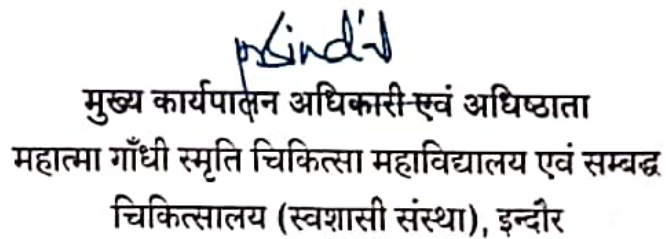 मुख्य कार्यपालन अधिकारी एवं अधिष्ठाता
महात्मा गाँधी स्मृति चिकित्सा महाविद्यालय एवं सम्बद्ध
चिकित्सालय (स्वशासी संस्था), इन्दौर